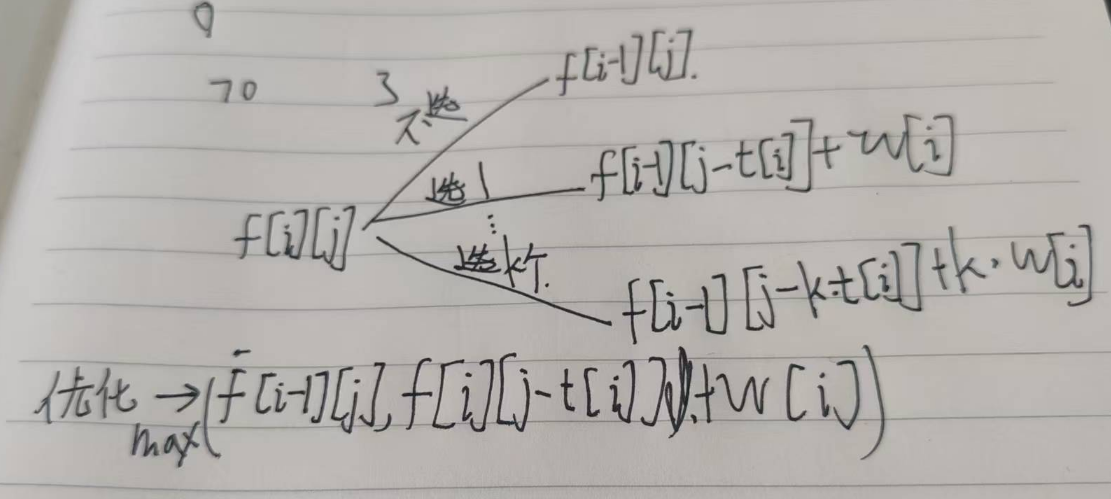 0
70 3
不选 f[i-1][j].
选1 f[i-1][j-t[i]]+w[i]
⋮
f[i][j]
选k个. f[i-1][j-k·t[i]]+k·w[i]
优化→max(f[i-1][j], f[i][j-t[i]]+w[i])